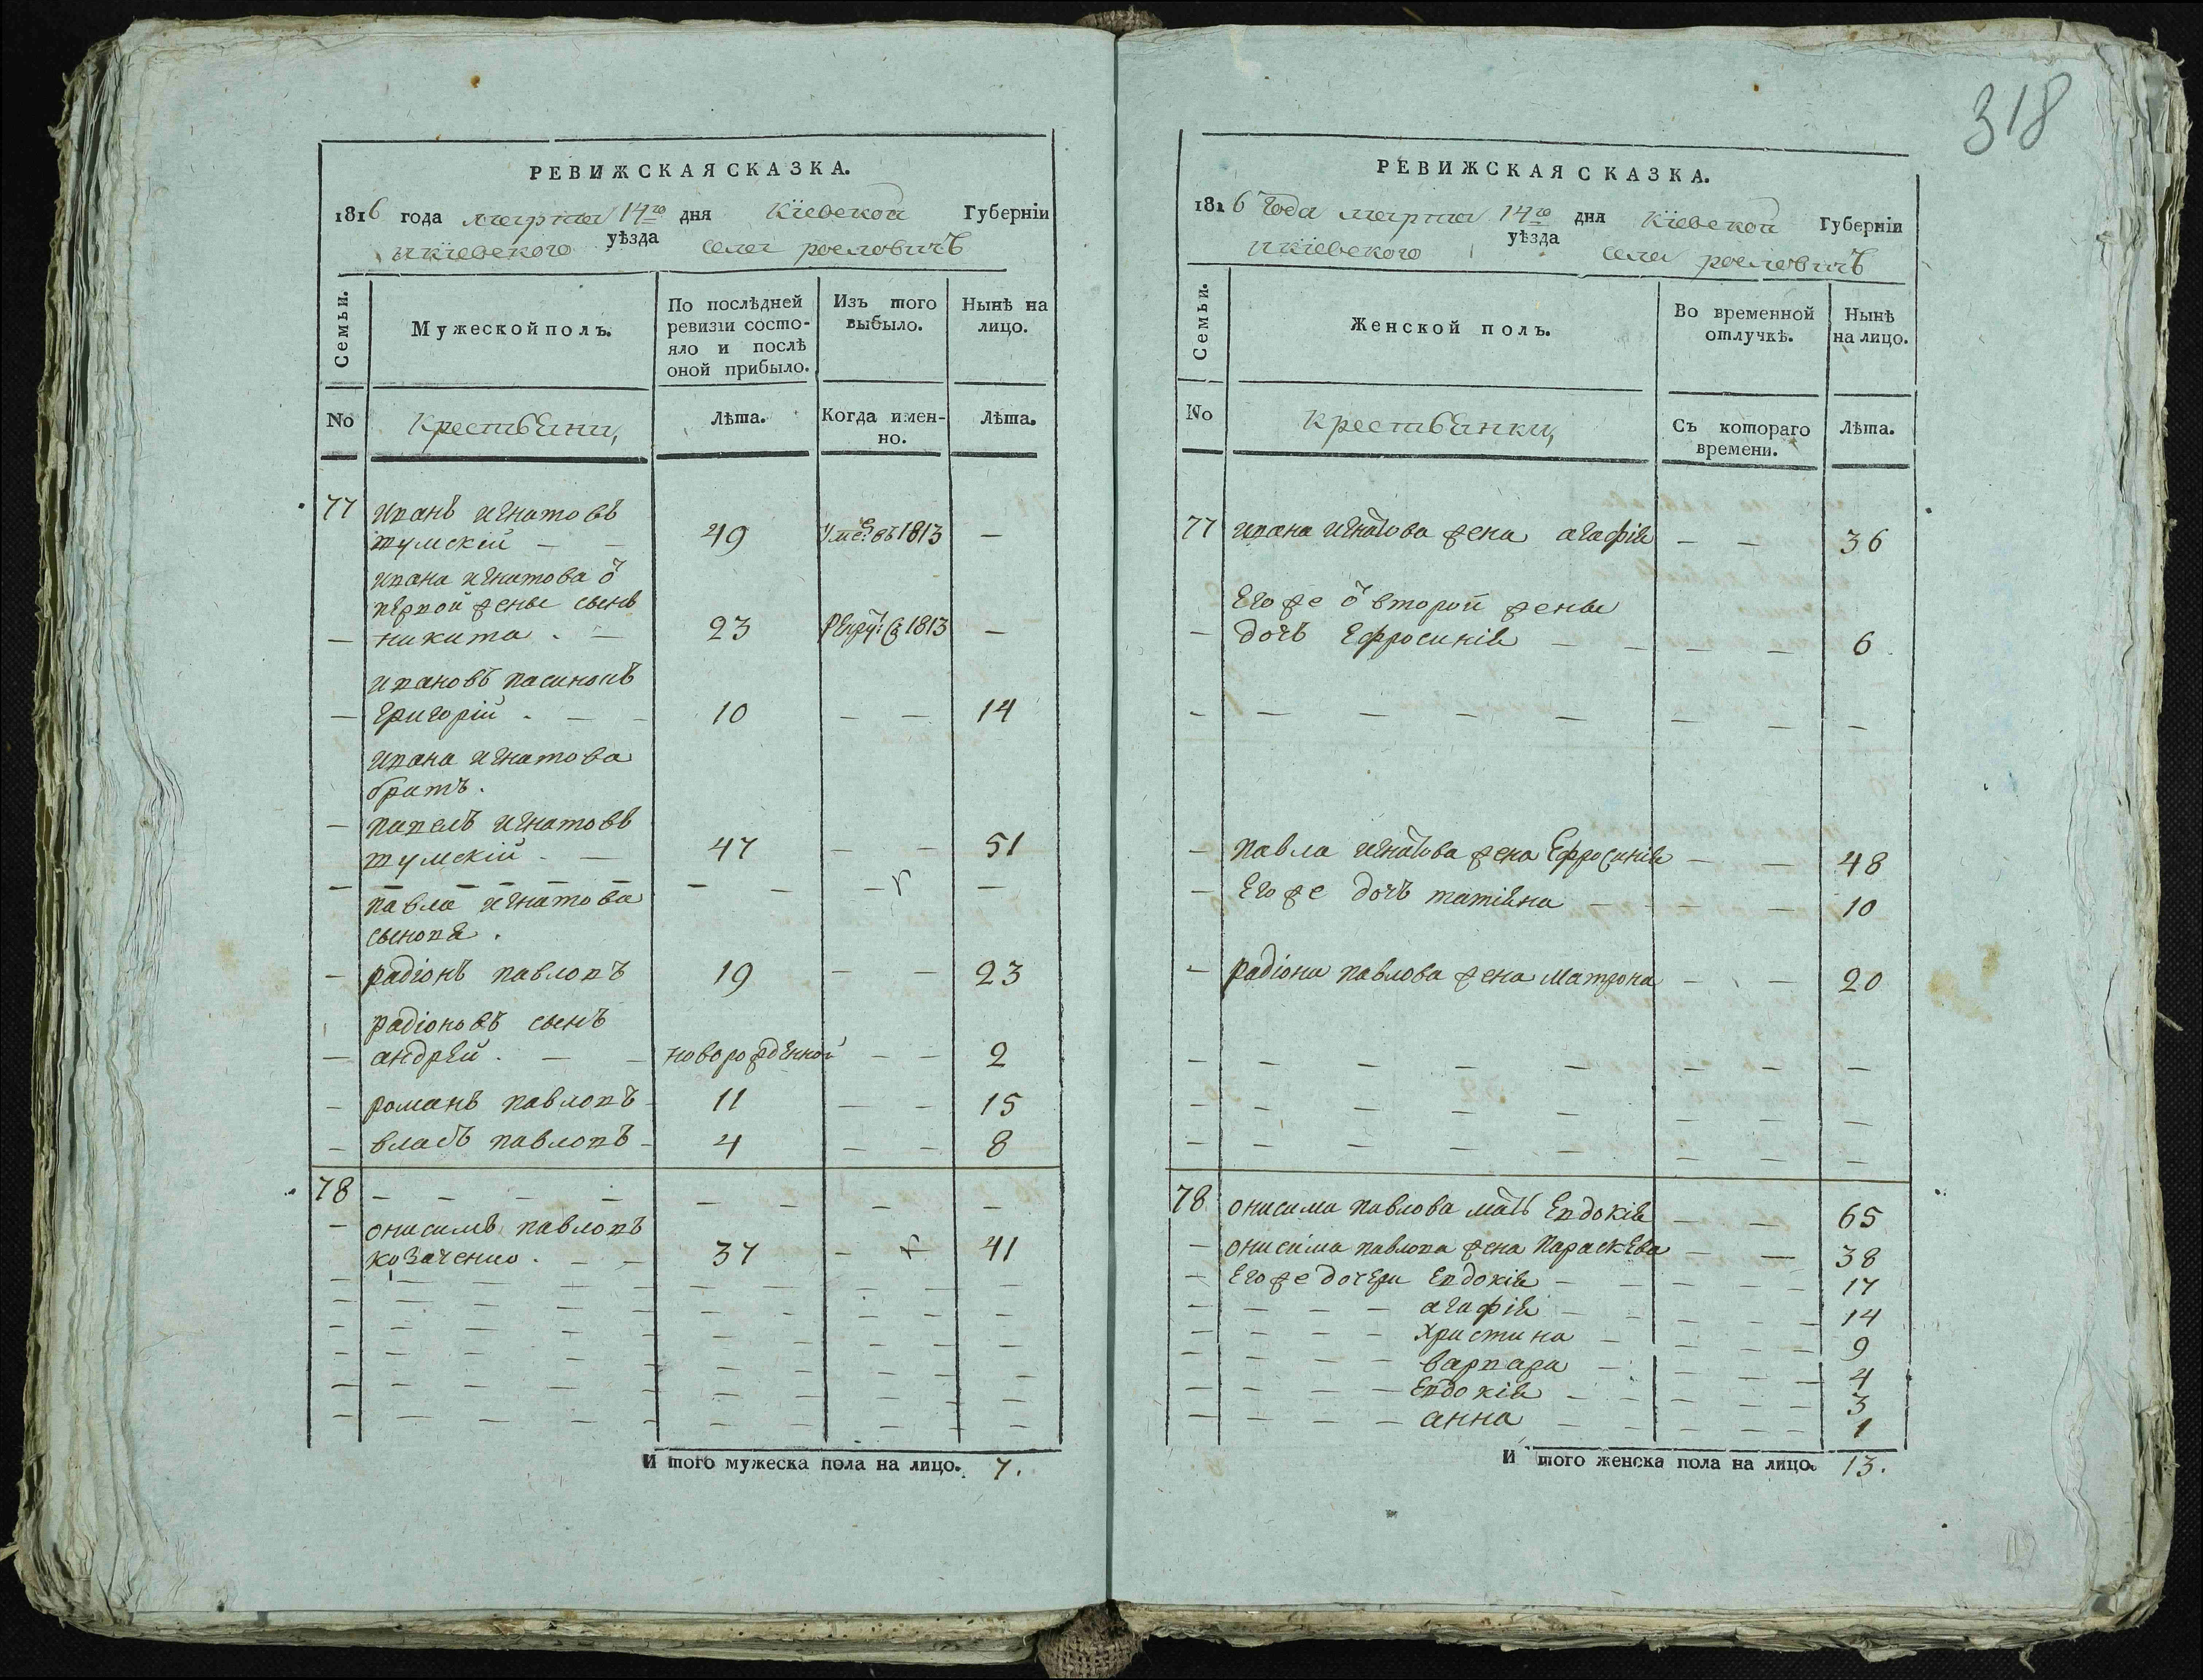 318
РЕВИЖСКАЯ СКАЗКА.
1816 года марта 14го дня Кіевской Губерніи
и кіевского уѣзда села рословичъ
Семьи.
Мужеской полъ.
По послѣдней ревизіи состояло и послѣ оной прибыло.
Изъ того выбыло.
Нынѣ на лицо.
No
Крестьяни,
Лѣта.
Когда именно.
Лѣта.
77 иванъ игнатовъ
тумскій — — 49 умеръ въ 1813 —
ивана игнатова ѿ
первой жены сынъ
— никита . — 23 1813 —
ивановъ пасинокъ
— григорій . — — 10 — — 14
ивана игнатова
братъ .
— павелъ игнатовъ
тумскій . — 47 — — 51
— — — — — — — — — —
павла игнатова
сыновя .
— радіонъ павловъ 19 — — 23
радіоновъ сынъ
— андрей . — — новорожденной — — 2
— романъ павловъ — 11 — — 15
— власъ павловъ — 4 — — 8
78 — — — — — — — — —
— онисимъ павловъ
козаченко . — — 37 — 41
И того мужеска пола на лицо. 7.
РЕВИЖСКАЯ СКАЗКА.
1816 года марта 14го дня Кіевской Губерніи
и кіевского уѣзда села рословичъ
Семьи.
Женской полъ.
Во временной отлучкѣ.
Нынѣ на лицо.
No
Крестьянки,
Съ котораго времени.
Лѣта.
77 ивана игнатова жена агафія — — 36
Его же ѿ второй жены
— дочь Ефросинія — — — — 6
— — — — — — — —
— павла игнатова жена Ефросинія — — 48
— Его же дочь татіяна — — — — 10
— радіона павлова жена Матрона — — 20
— — — — — — — —
— — — — — — — —
— — — — — — — —
78 онисима павлова мать Евдокія — — 65
— онисима павлова жена Параскева — — 38
— Его же дочери Евдокія — — — — 17
— — — — агафія — — — — 14
— — — — Христина — — — — 9
— — — — варвара — — — — 4
— — — — Евдокія — — — — 3
— — — — анна — — — — 1
И того женска пола на лицо. 13.